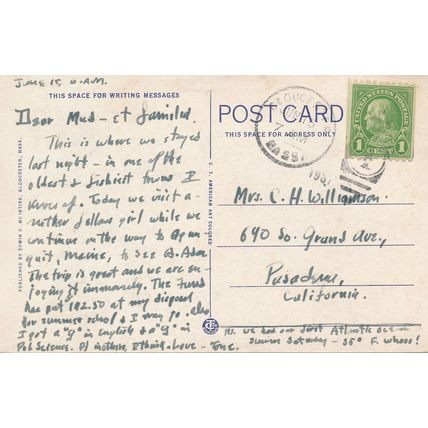 June 15, 6 A.M.
THIS SPACE FOR WRITING MESSAGES
Dear Mud - et familia.
This is where we stayed
last night - in one of the
oldest & fishiest towns I
know of. Today we visit a-
nother fellows girl while we
continue on the way to Ogun
quit, Maine, to see B. Adon.
The trip is great and we are en-
joying it immensely. The Fund
has put 192.50 at my disposal
for summer school & I may go. Also
I got a "g" in English & a "g" in
Pol Science. Love -
PUBLISHED BY EDWIN C. MCINTIRE, GLOUCESTER, MASS.
C. T. AMERICAN ART COLORED
POST CARD
THIS SPACE FOR ADDRESS ONLY
GLOUCESTER
MASS.
UNITED STATES POSTAGE
FRANKLIN
1 CENT 1
Mrs. C. H. Williamson
640 So. Grand Ave.,
Pasadena,
California.
P.S. we had our first Atlantic ocean
swim Saturday - 55° F. whooo!